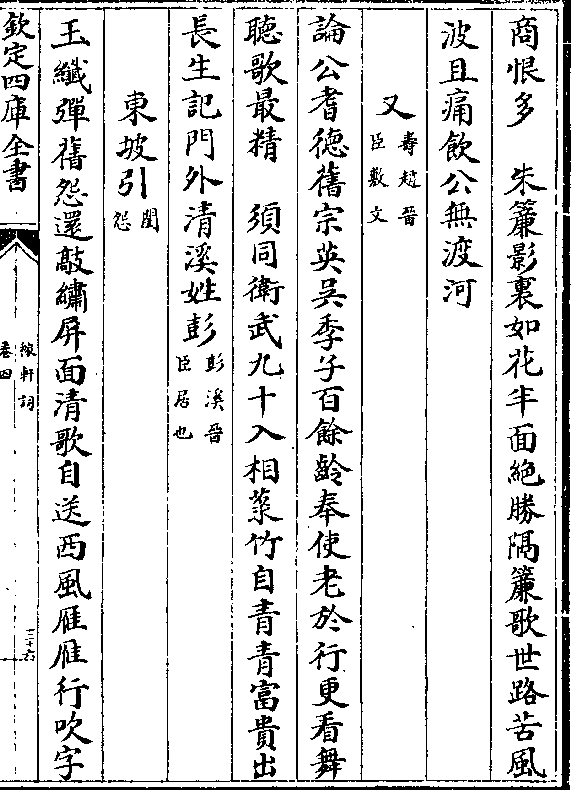 商恨多　朱簾影裏如花半面絶勝隔簾歌世路苦風
波且痛飲公無渡河
又壽趙晉臣敷文
論公耆德舊宗英吳季子百餘齡奉使老於行更看舞
聽歌最精　須同衛武九十入相菉竹自青青富貴出
長生記門外清溪姓彭彭溪晉臣居也
東坡引閨怨
玉纖彈舊怨還敲繡屏面清歌自送西風雁雁行吹字
欽定四庫全書
稼軒詞
卷四
三十六